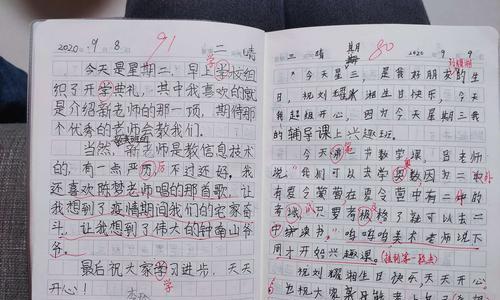 2020年9月8日 91 二 晴
今天是星期二，早上学校组
织了开学典礼，其中我喜欢的就
是介绍新老师的那一项，期待那
个优秀的老师会教我们。
当然，新老师是教信息技术
的，有一点严厉，不过还好。我
还喜欢陈梦老师唱的那首歌，让
我想到了疫情期间我们的宅家奋
斗，让我想到了伟大的钟南山爷
爷。
最后祝大家学习进步，天天
开心！
三 晴 80 2020年9月9
今天星三，是我好朋友的生
日，祝刘耀湘生日快乐，今天
我超组开心，因为今天星期三我
的辅导课上兴趣班。
今天第节数学课，吕老师
说："我们可以去学奥数因为二中
有要令营营在要令营中有二中的
考试，只要有极格了谁可以去二
中读书。"
才开始兴趣课。
祝刘耀湘生日快乐，天天开